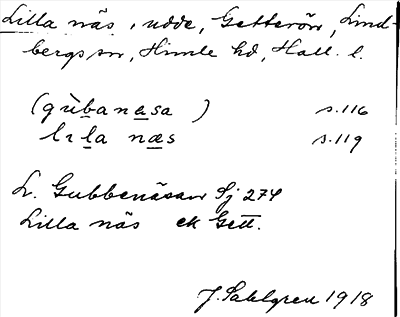 Lilla näs, udde, Getterön, Lind-
bergs sn, Himle hd, Hall. l.
(gùbanasa ) s. 116
lıla næs s. 119
L. Gubbenäsan Sj 274
Lilla näs ek Gett.
J. Sahlgren 1918